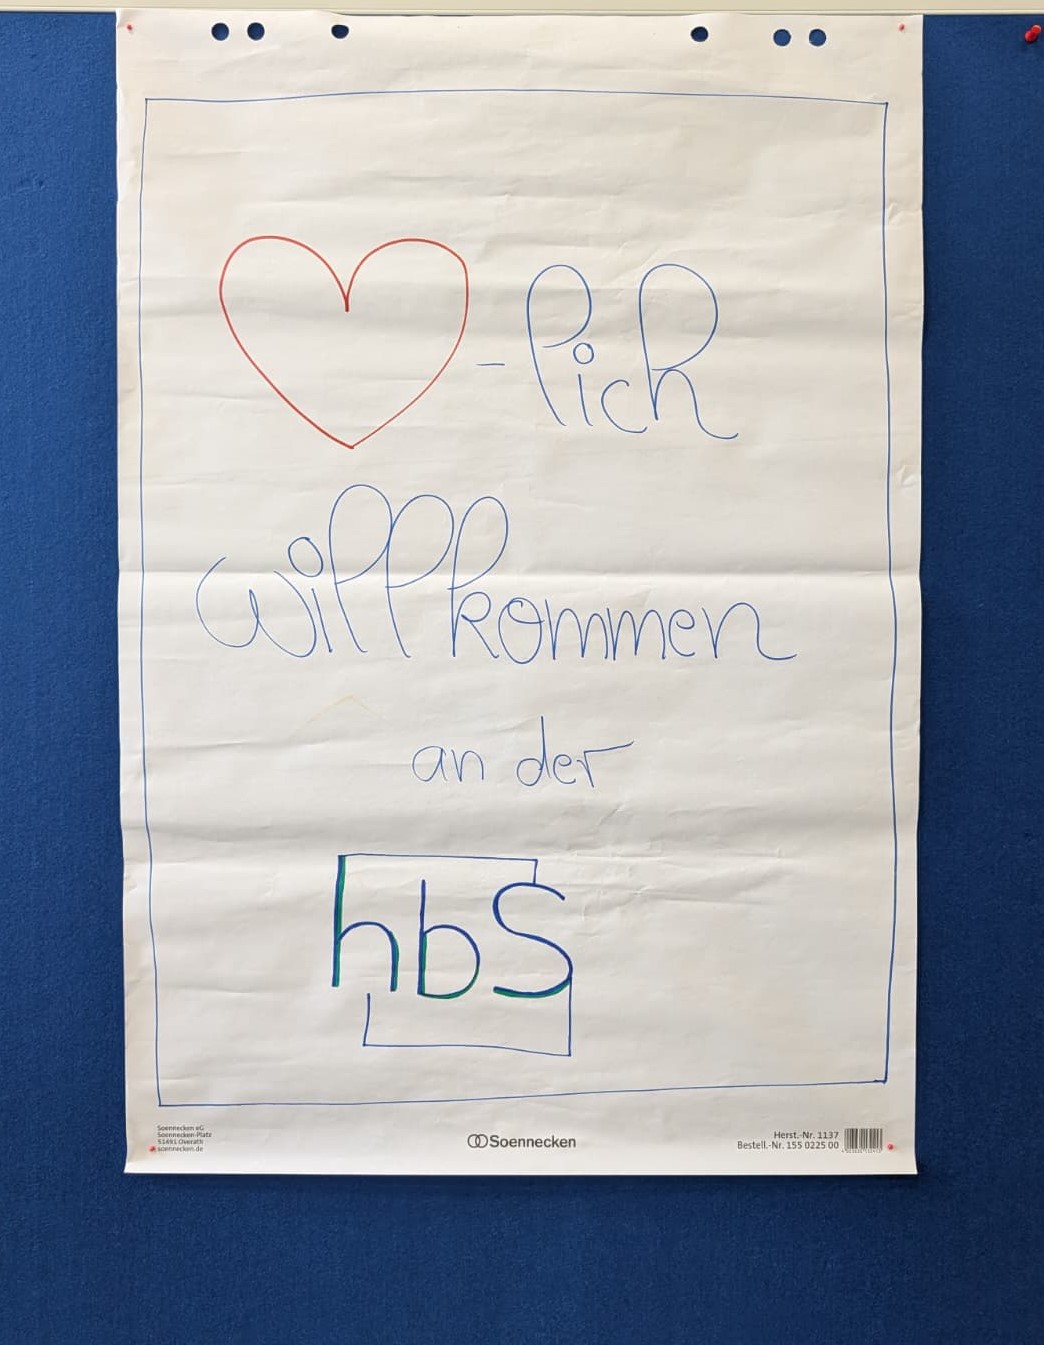 -lich
willkommen
an der
hbs
Soennecken eG
Soennecken-Platz
51491 Overath
soennecken.de
Soennecken
Herst.-Nr. 1137
Bestell.-Nr. 155 0225 00